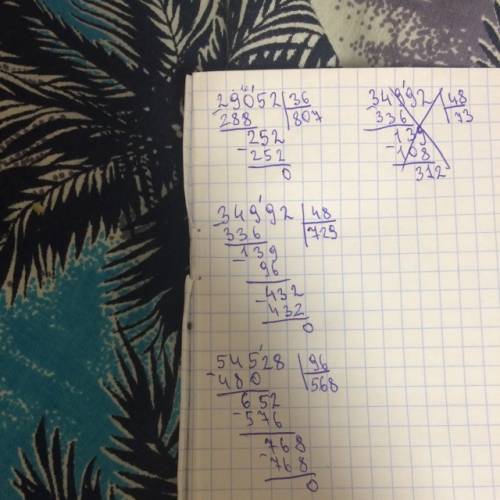 29052 | 36
288 | 807
-252
252
0
34992 | 48
336 | 73
139
-108
312
34992 | 48
336 | 729
-139
96
-432
432
0
-54528 | 96
480 | 568
652
-576
768
-768
0